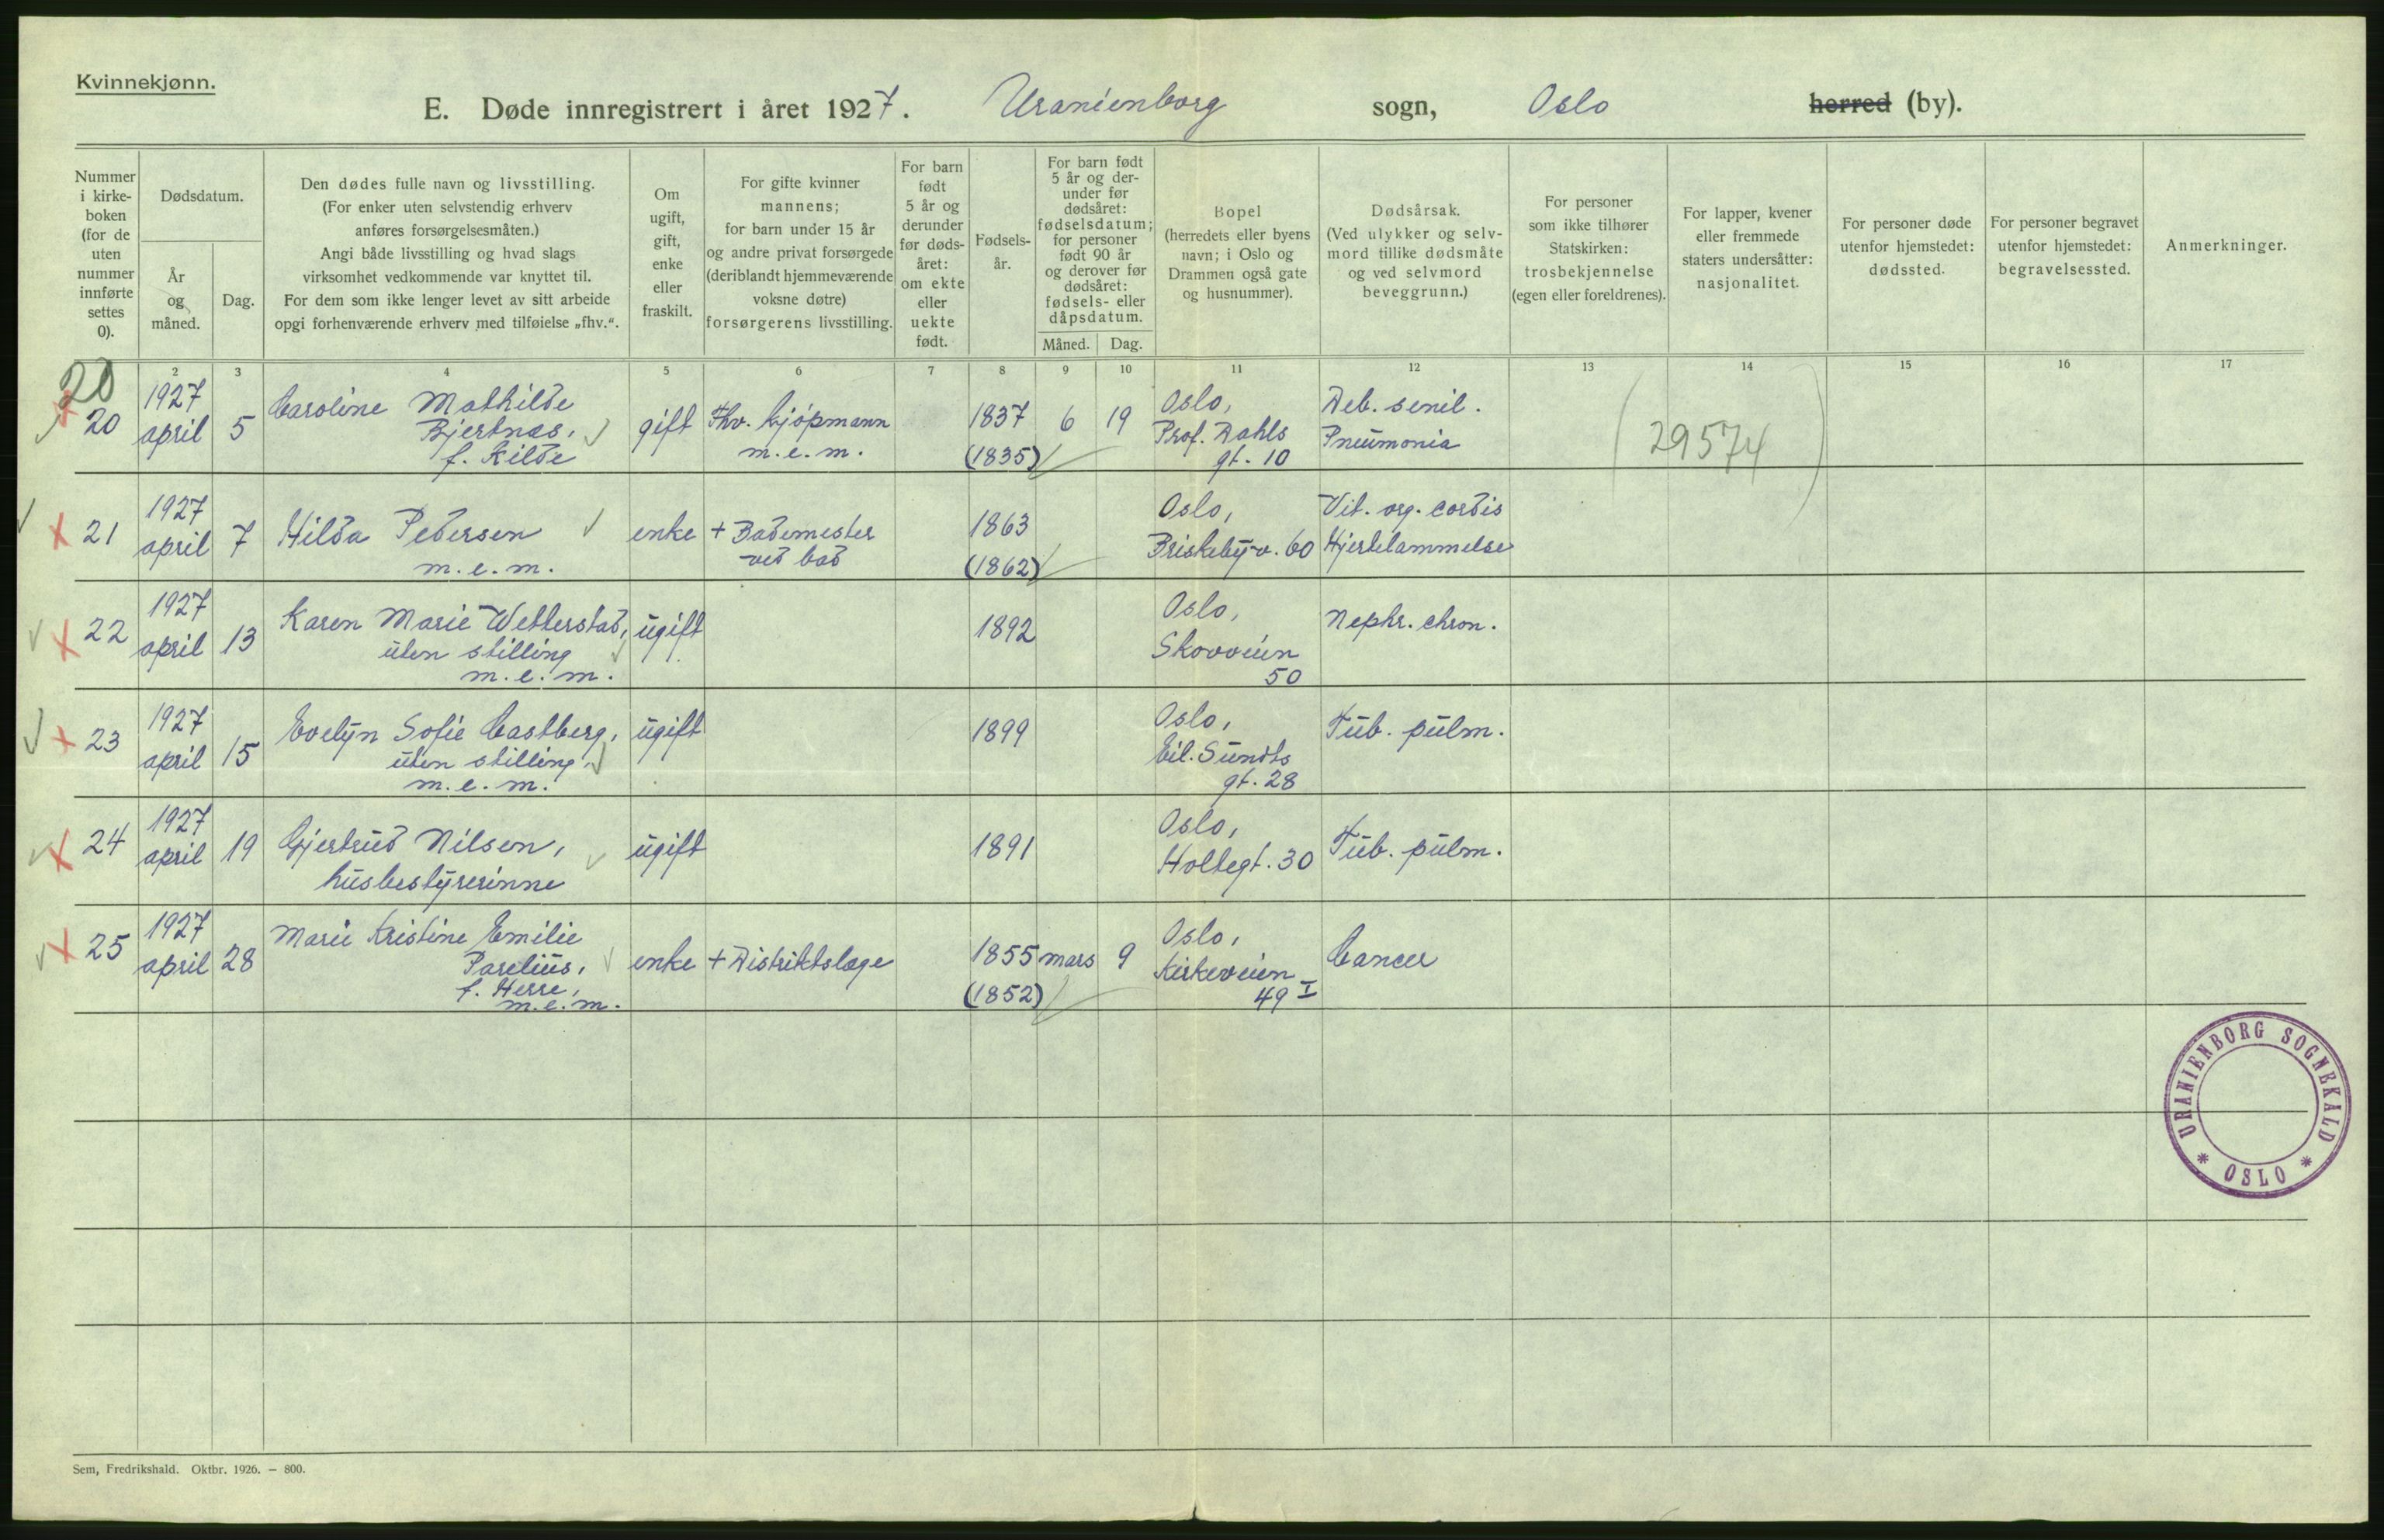 Kvinnekjønn.
E. Døde innregistrert i året 1927. Uranienborg sogn, Oslo herred (by).
Nummer
i kirke-
boken
(for de
uten
nummer
innførte
settes
0).
Dødsdatum.
År
og
måned.
Dag.
Den dødes fulle navn og livsstilling.
(For enker uten selvstendig erhverv
anføres forsørgelsesmåten.)
Angi både livsstilling og hvad slags
virksomhet vedkommende var knyttet til.
For dem som ikke lenger levet av sitt arbeide
opgi forhenværende erhverv med tilføielse „fhv.“.
Om
ugift,
gift,
enke
eller
fraskilt.
For gifte kvinner
mannens;
for barn under 15 år
og andre privat forsørgede
(deriblandt hjemmeværende
voksne døtre)
forsørgerens livsstilling.
For barn
født
5 år og
derunder
før døds-
året:
om ekte
eller
uekte
født.
Fødsels-
år.
For barn født
5 år og der-
under før
dødsåret:
fødselsdatum;
for personer
født 90 år
og derover før
dødsåret:
fødsels- eller
dåpsdatum.
Måned. Dag.
Bopel
(herredets eller byens
navn; i Oslo og
Drammen også gate
og husnummer).
Dødsårsak.
(Ved ulykker og selv-
mord tillike dødsmåte
og ved selvmord
beveggrunn.)
For personer
som ikke tilhører
Statskirken:
trosbekjennelse
(egen eller foreldrenes).
For lapper, kvener
eller fremmede
staters undersåtter:
nasjonalitet.
For personer døde
utenfor hjemstedet:
dødssted.
For personer begravet
utenfor hjemstedet:
begravelsessted.
Anmerkninger.
2 3 4 5 6 7 8 9 10 11 12 13 14 15 16 17
20
20
1927
april
5
Caroline Mathilde
Bjertnæs,
f. Kilde
gift
Fhv. kjøpmann
m.e.m.
1837
(1835)
6
19
Oslo,
Prof. Dahls
gt. 10
Deb. senil.
Pneumonia
(29574)
21
1927
april
7
Hilda Pedersen
m.e.m.
enke
+ Bademester
ved bad
1863
(1862)
Oslo,
Briskebyv. 60
Vit. org. cordis
Hjertelammelse
22
1927
april
13
Karen Marie Wetterstad,
uten stilling
m.e.m.
ugift
1892
Oslo,
Skovveien
50
Nephr. chron.
23
1927
april
15
Evelyn Sofie Castberg,
uten stilling,
m.e.m.
ugift
1899
Oslo,
Eil. Sundts
gt. 28
Tub. pulm.
24
1927
april
19
Gjertrud Nilsen,
husbestyrerinne
ugift
1891
Oslo,
Holtegt. 30
Tub. pulm.
25
1927
april
28
Marie Kristine Emilie
Parelius,
f. Herre,
m.e.m.
enke
+ Distriktslæge
1855
(1852)
mars
9
Oslo,
Kirkeveien
49 I
Cancer
URANIENBORG SOGNEKALD
* OSLO *
Sem, Fredrikshald. Oktbr. 1926. — 800.